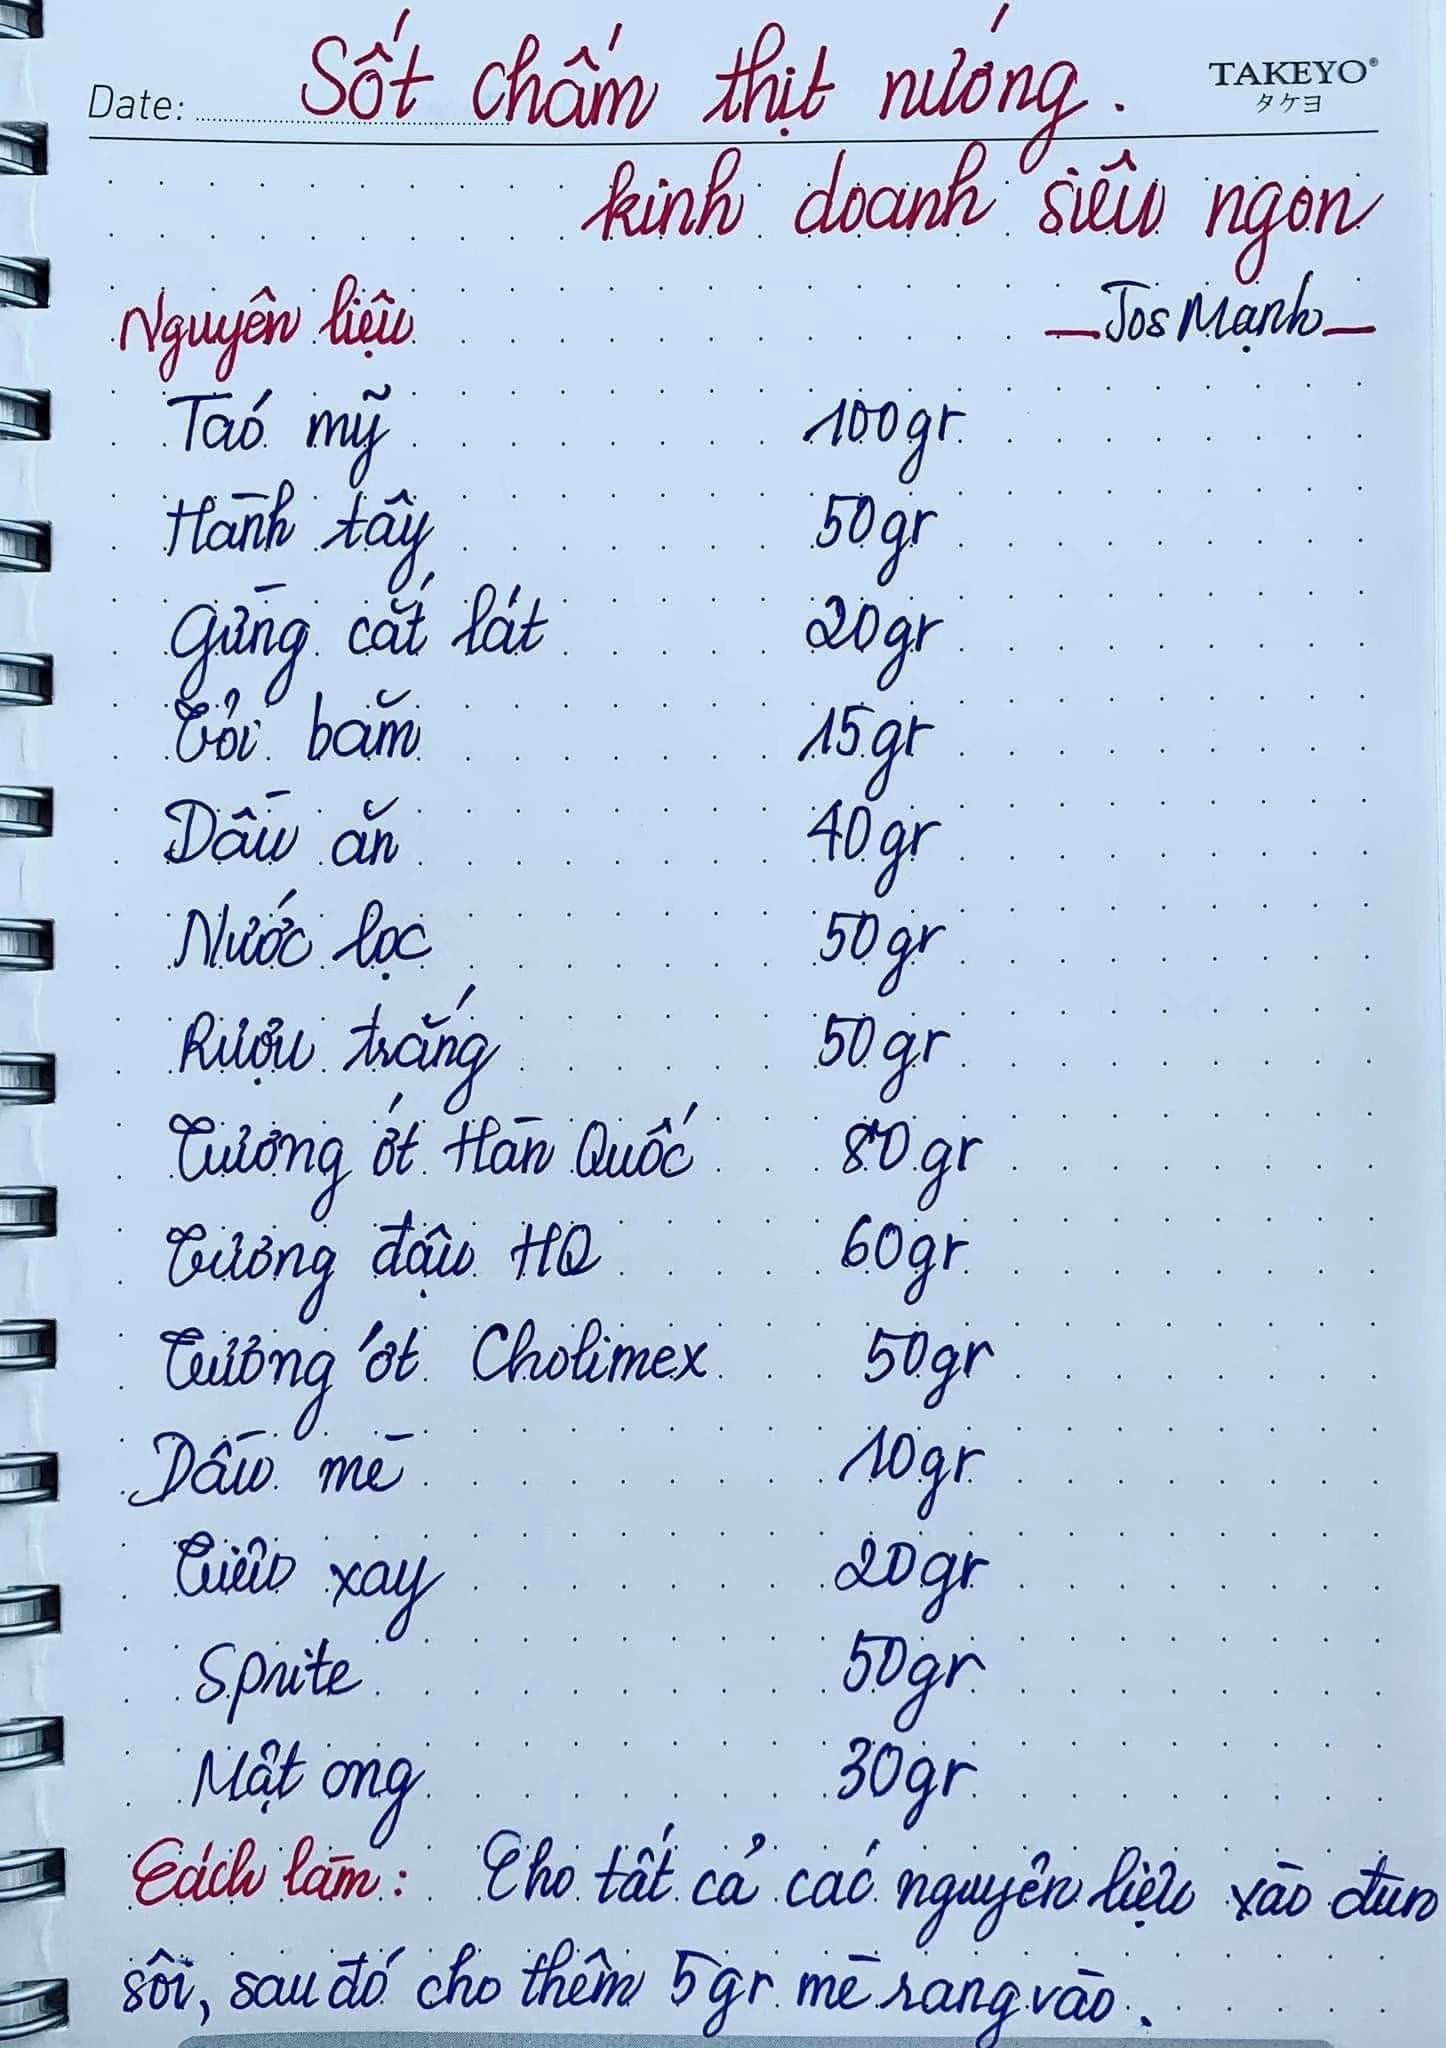 Date: Sốt chấm thịt nướng.
TAKEYO®
タケヨ
kinh doanh siêu ngon
Nguyên liệu
_Jos Mạnh_
Táo mỹ 100gr
Hành tây 50gr
Gừng cắt lát 20gr
Tỏi băm 15gr
Dầu ăn 40gr
Nước lọc 50gr
Rượu trắng 50gr
Tương ớt Hàn Quốc 80gr
Tương đậu HQ 60gr
Tương ớt Cholimex 50gr
Dầu mè 10gr
Tiêu xay 20gr
Sprite 50gr
Mật ong 30gr
Cách làm: Cho tất cả các nguyên liệu vào đun
sôi, sau đó cho thêm 5gr mè rang vào.